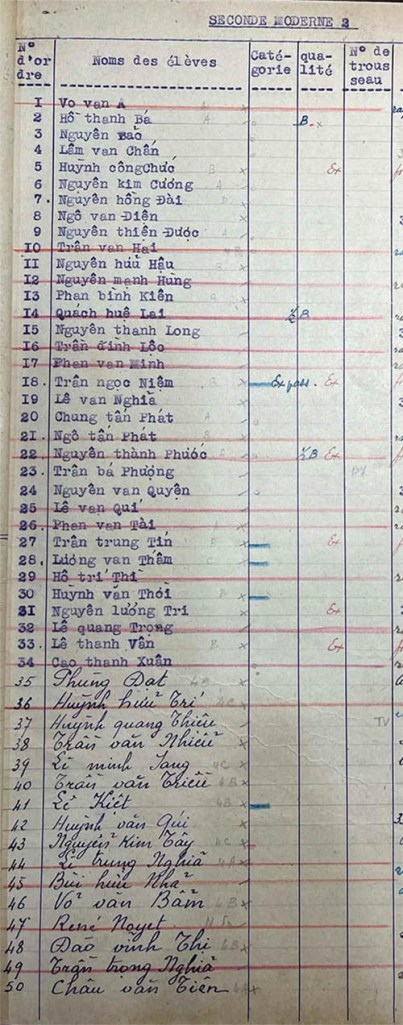 SECONDE MODERNE 2
N° d'or dre Noms des élèves Caté- gorie qua- lité N° de trous seau
1 Vo van A
2 Hồ thanh Bá B
3 Nguyên Bảo
4 Lâm van Chấn
5 Huỳnh côngChức Ex
6 Nguyên kim Cương
7. Nguyên hồng Đài
8 Ngô van Điển
9 Nguyên thiên Được
10 Trân van Hai
11 Nguyên hưu Hậu
12 Nguyên mạnh Hùng
13 Phan bình Kiên
14 Quách huê Lai ½ B
15 Nguyên thanh Long
16 Trân đình Lộc
17 Phan van Minh
18. Trân ngọc Niệm Ex pass. Ex
19 Lê van Nghia
20 Chung tấn Phát
21. Ngô tấn Phát
22 Nguyên thành Phước ½B Ex
23. Trân bá Phượng
24 Nguyên van Quyện
25 Lê van Quí
26. Phan van Tài
27 Trân trung Tín Ex
28. Lương van Thâm
29 Hồ trí Thì
30 Huỳnh van Thới
31 Nguyên lương Tri Ex
32 Lê quang Trọng
33. Lê thanh Vân Ex
34 Cao thanh Xuân
35 Phùng Đạt
36 Huỳnh hữu Trí
37 Huỳnh quang Thiêu TV
38 Trần văn Nhiều
39 Lê minh Sang 4C
40 Trần văn Triều 4B
41 Lê Kiết 4B
42 Huỳnh văn Gúi
43 Nguyễn Kim Tây 4C
44 Lê trung Nghĩa
45 Bùi hữu Nhã
46 Võ văn Bẩm 4B
47 René Noyet
48 Đào vĩnh Thị 4B
49 Trần trọng Nghĩa
50 Châu văn Tiên